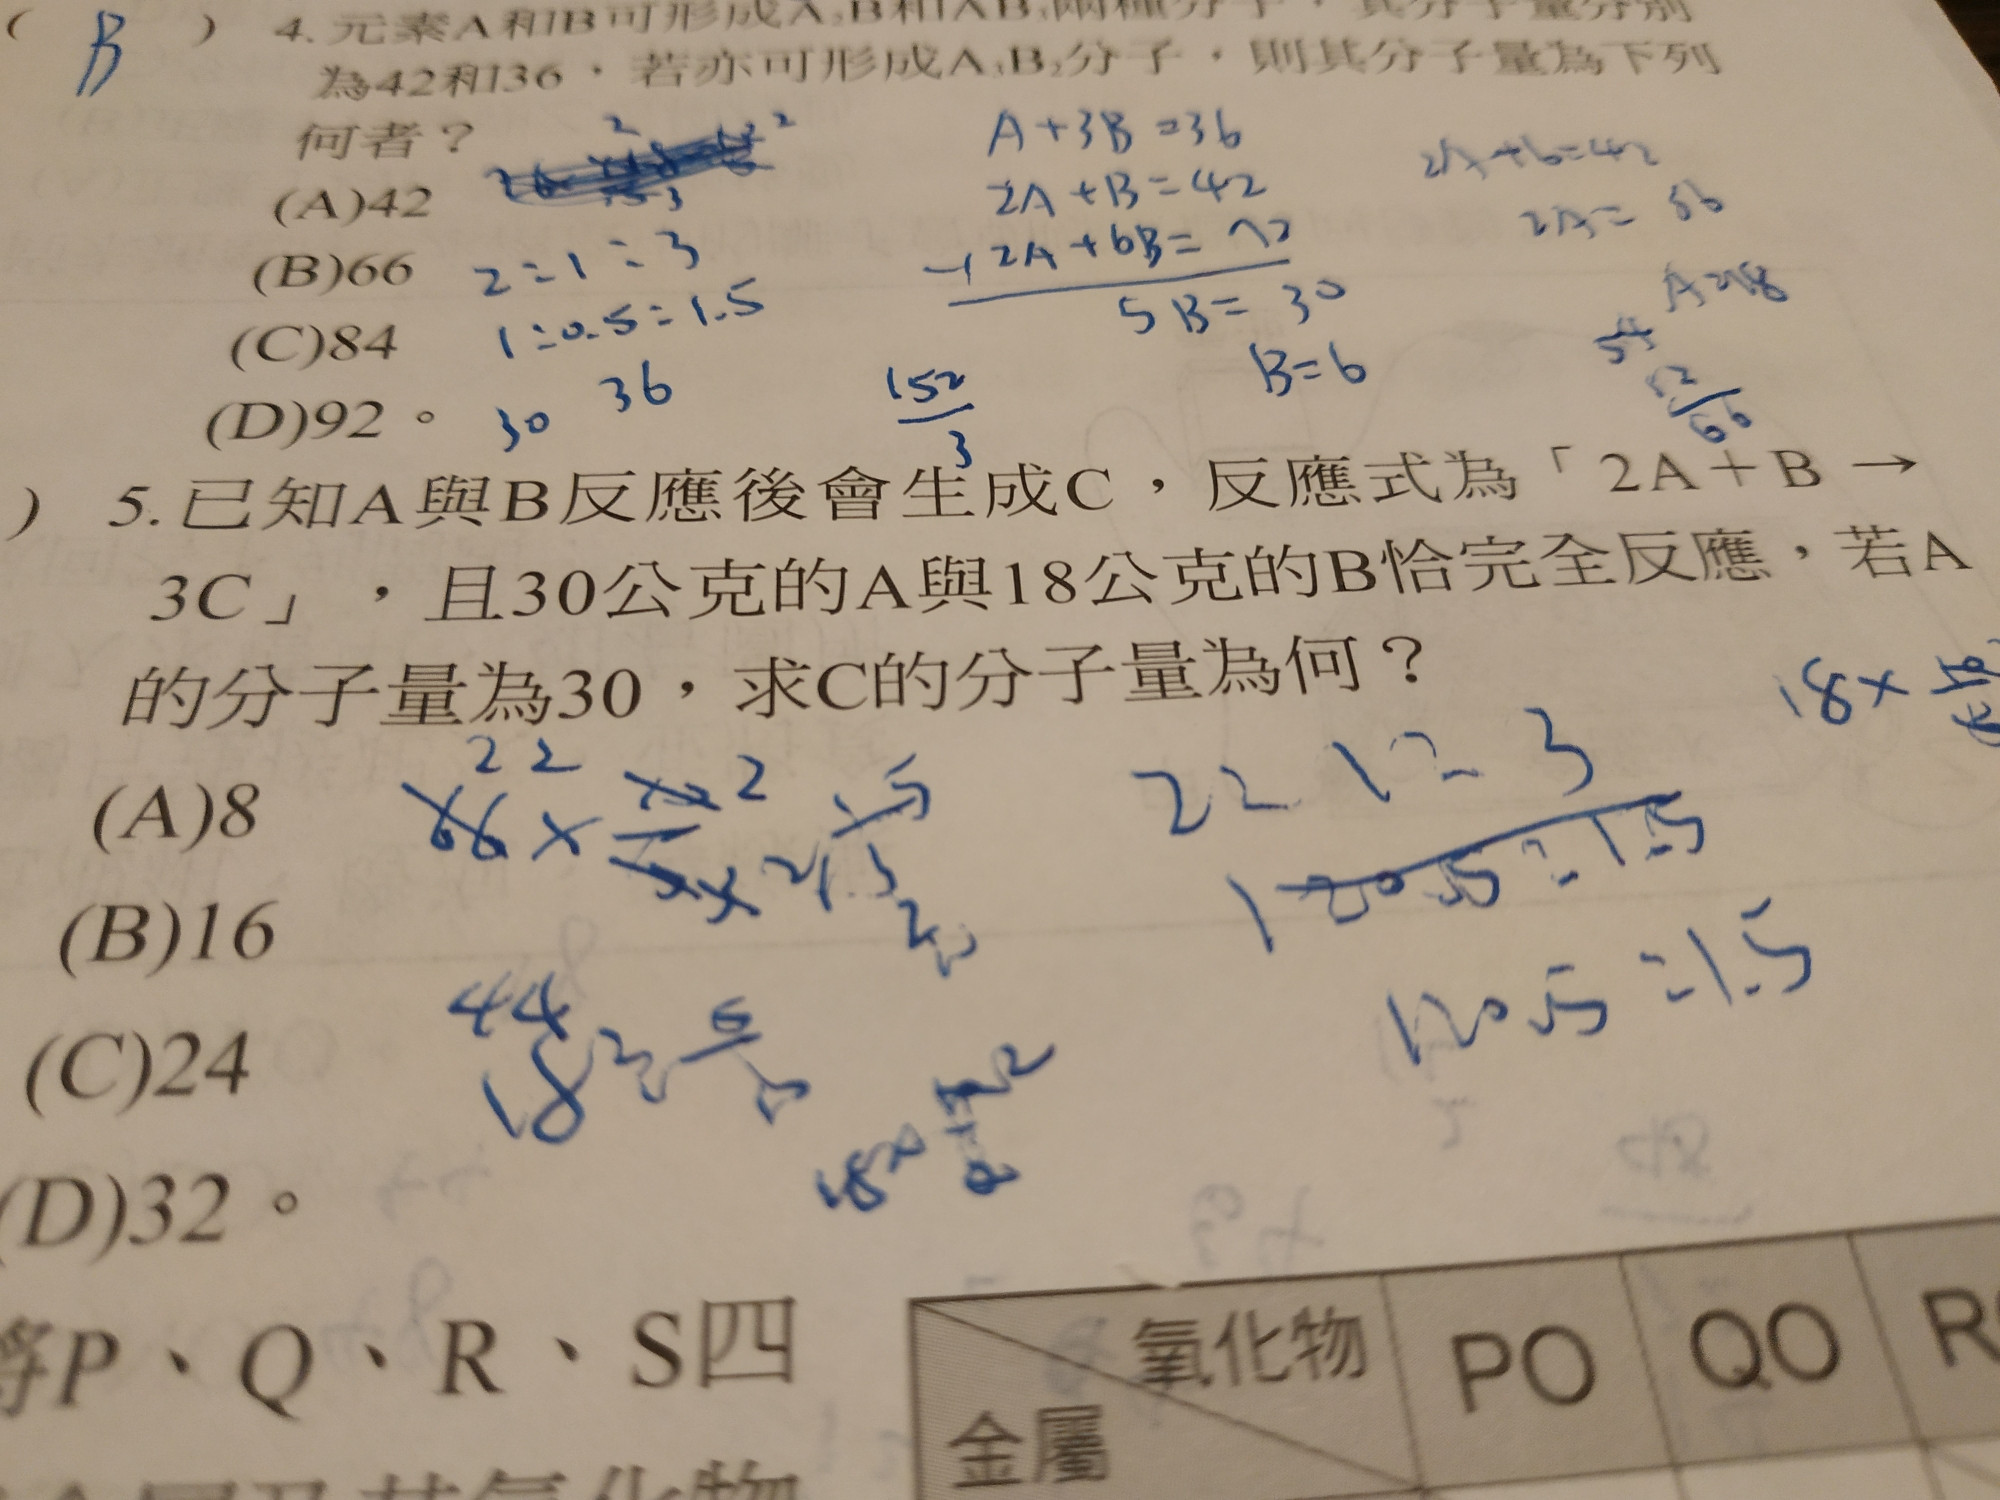 ( B ) 4.元素A和B可形成A₂B和AB₃兩種分子，其分子量分別
為42和36，若亦可形成A₃B₂分子，則其分子量為下列
何者？
(A)42
(B)66
(C)84
(D)92。
2:1:3
1:0.5:1.5
30 36
152
3
A+3B=36
2A+B=42
-) 2A+6B=72
5B=30
B=6
2A+6=42
2A=36
A=18
54
12
66
) 5.已知A與B反應後會生成C，反應式為「2A＋B→
3C」，且30公克的A與18公克的B恰完全反應，若A
的分子量為30，求C的分子量為何？
(A)8
(B)16
(C)24
(D)32。
22
66×
44
18
18×
2:1:3
1:0.5:1.5
1:0.5:1.5
18×
將P、Q、R、S四
氧化物
金屬
PO
QO